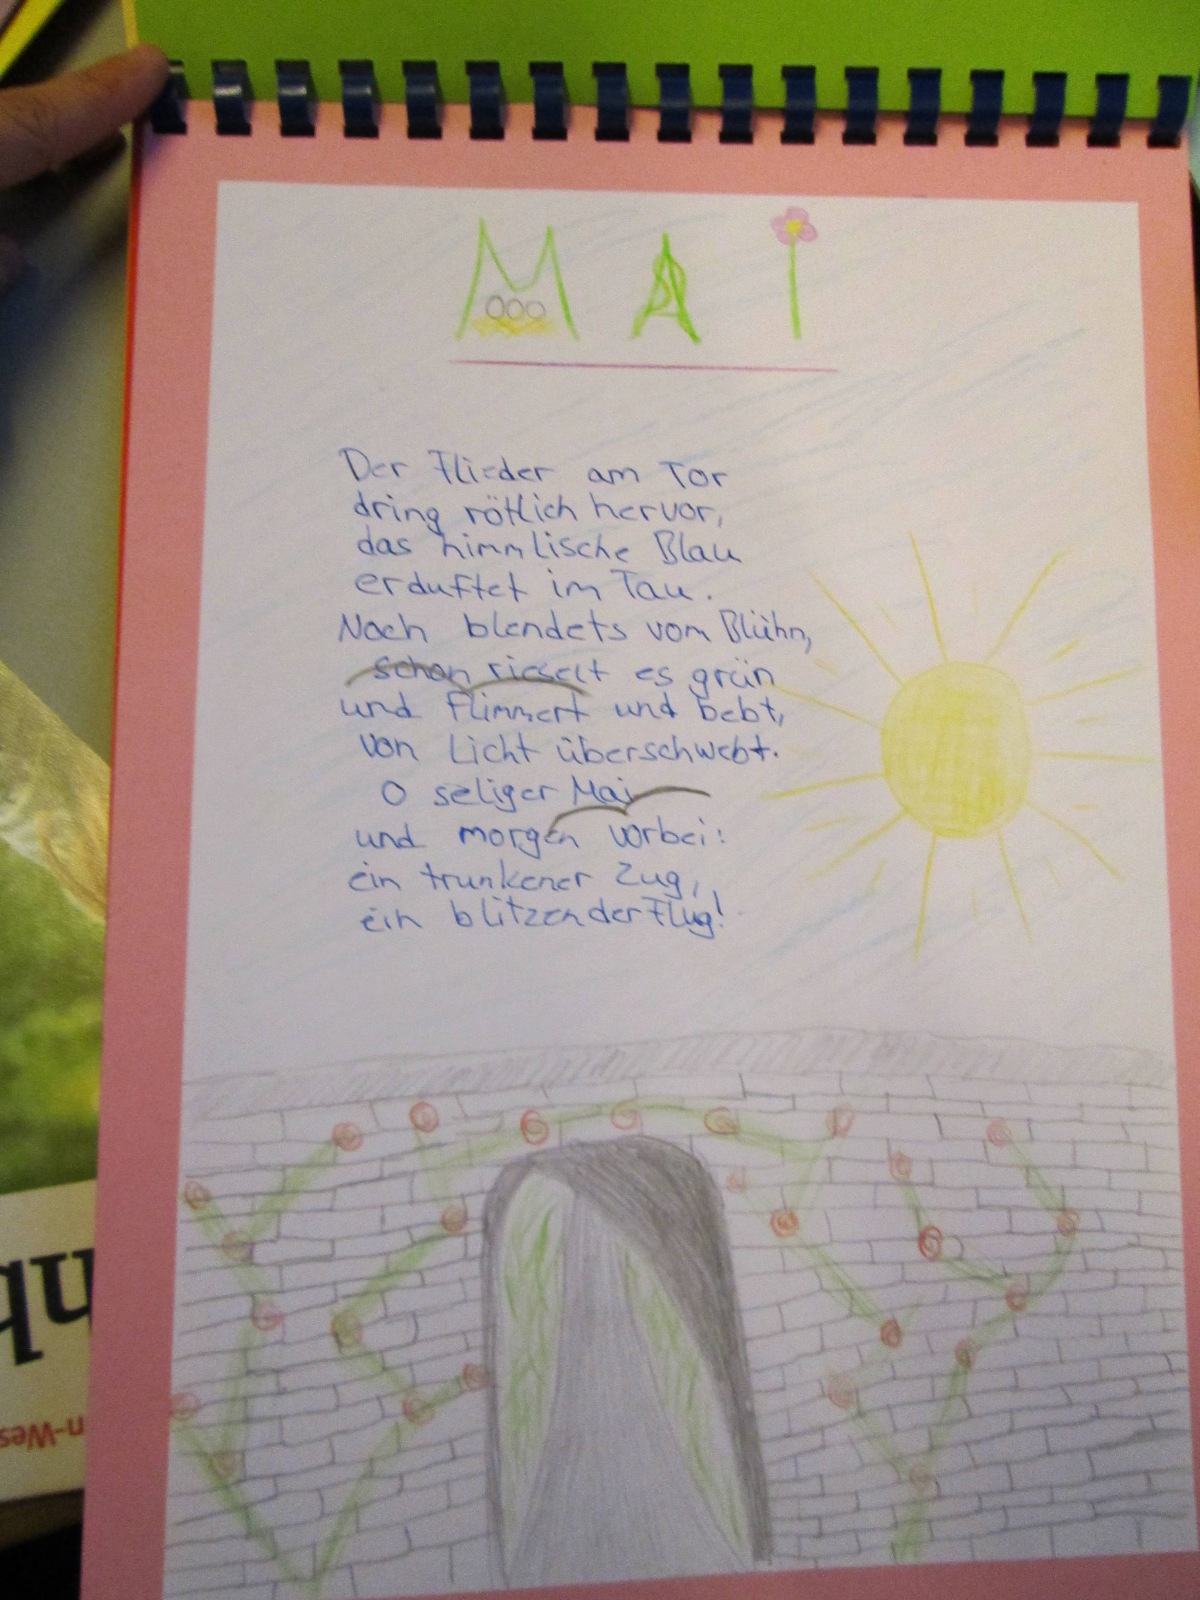 MAi
Der Flieder am Tor
dring rötlich hervor,
das himmlische Blau
erduftet im Tau.
Noch blendets vom Blühn,
schon rieselt es grün
und flimmert und bebt,
von Licht überschwebt.
O seliger Mai
und morgen vorbei:
ein trunkener Zug,
ein blitzender Flug!
n-Wes